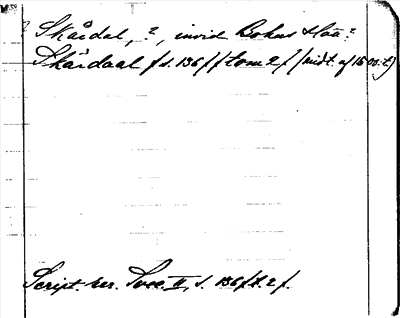 Skårdal, ?, invid Bohus
Skårdaal / s. 136 / / tom 2 / (midt. af 1600-t)
Script. rer. Svec. II, s. 136 / t. 2 /.